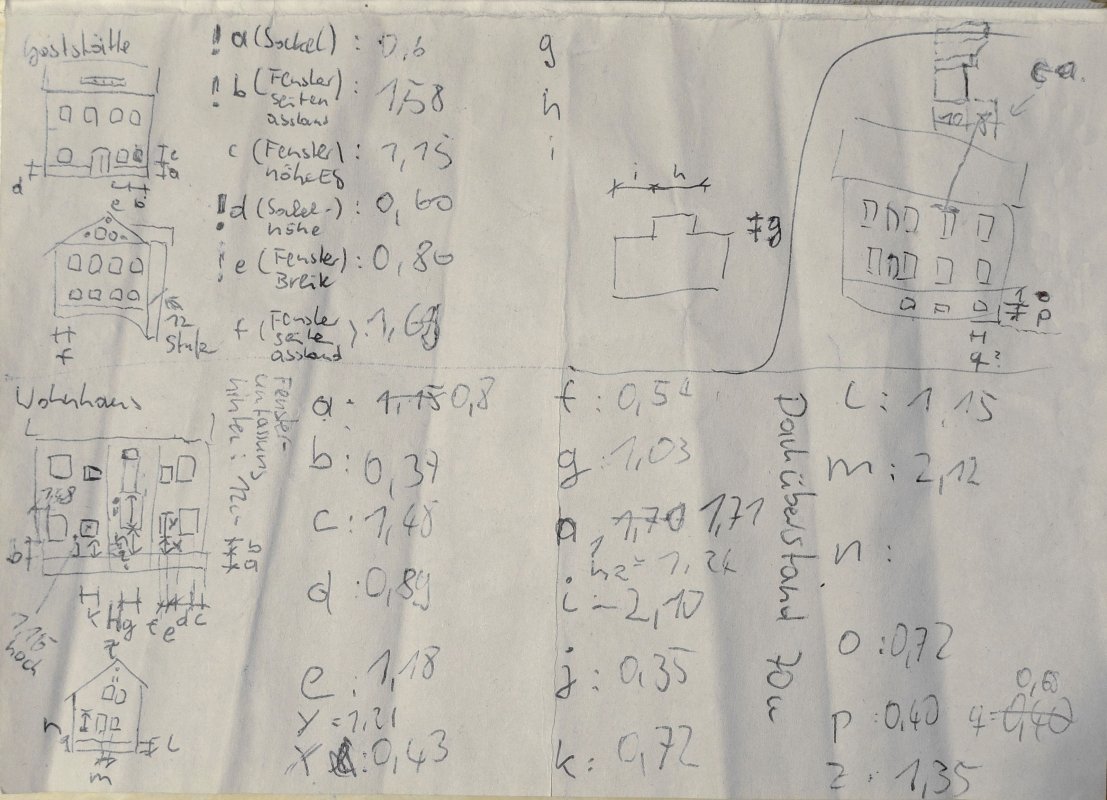 Gaststätte
! a (Sockel) : 0,6
! b (Fenster seiten abstand : 1,58
c (Fenster) höhe EG : 1,15
! d (Sockel-) höhe : 0,60
! e (Fenster) Breite : 0,80
f (Fenster seiten abstand ) : 1,69
g
h
i
i h
g
ca.
10 8
o
p
q?
d
c
a
b
e
12
f
Wohnhaus
Fenster-
umfassung
hinten : 12
a : 1,15 0,8
b : 0,37
c : 1,48
d : 0,89
e : 1,18
y = 1,21
x : 0,43
f : 0,54
g : 1,03
h 1,70 1,71
h2 = 1,24
i = 2,10
j : 0,35
k : 0,72
Dachüberstand 70
L : 1,15
m : 2,12
n :
o : 0,72
p : 0,40 q = 0,40 0,68
z : 1,35
1,48
b
j
k h g f e d c
1,15
hoch
z
n
L
m